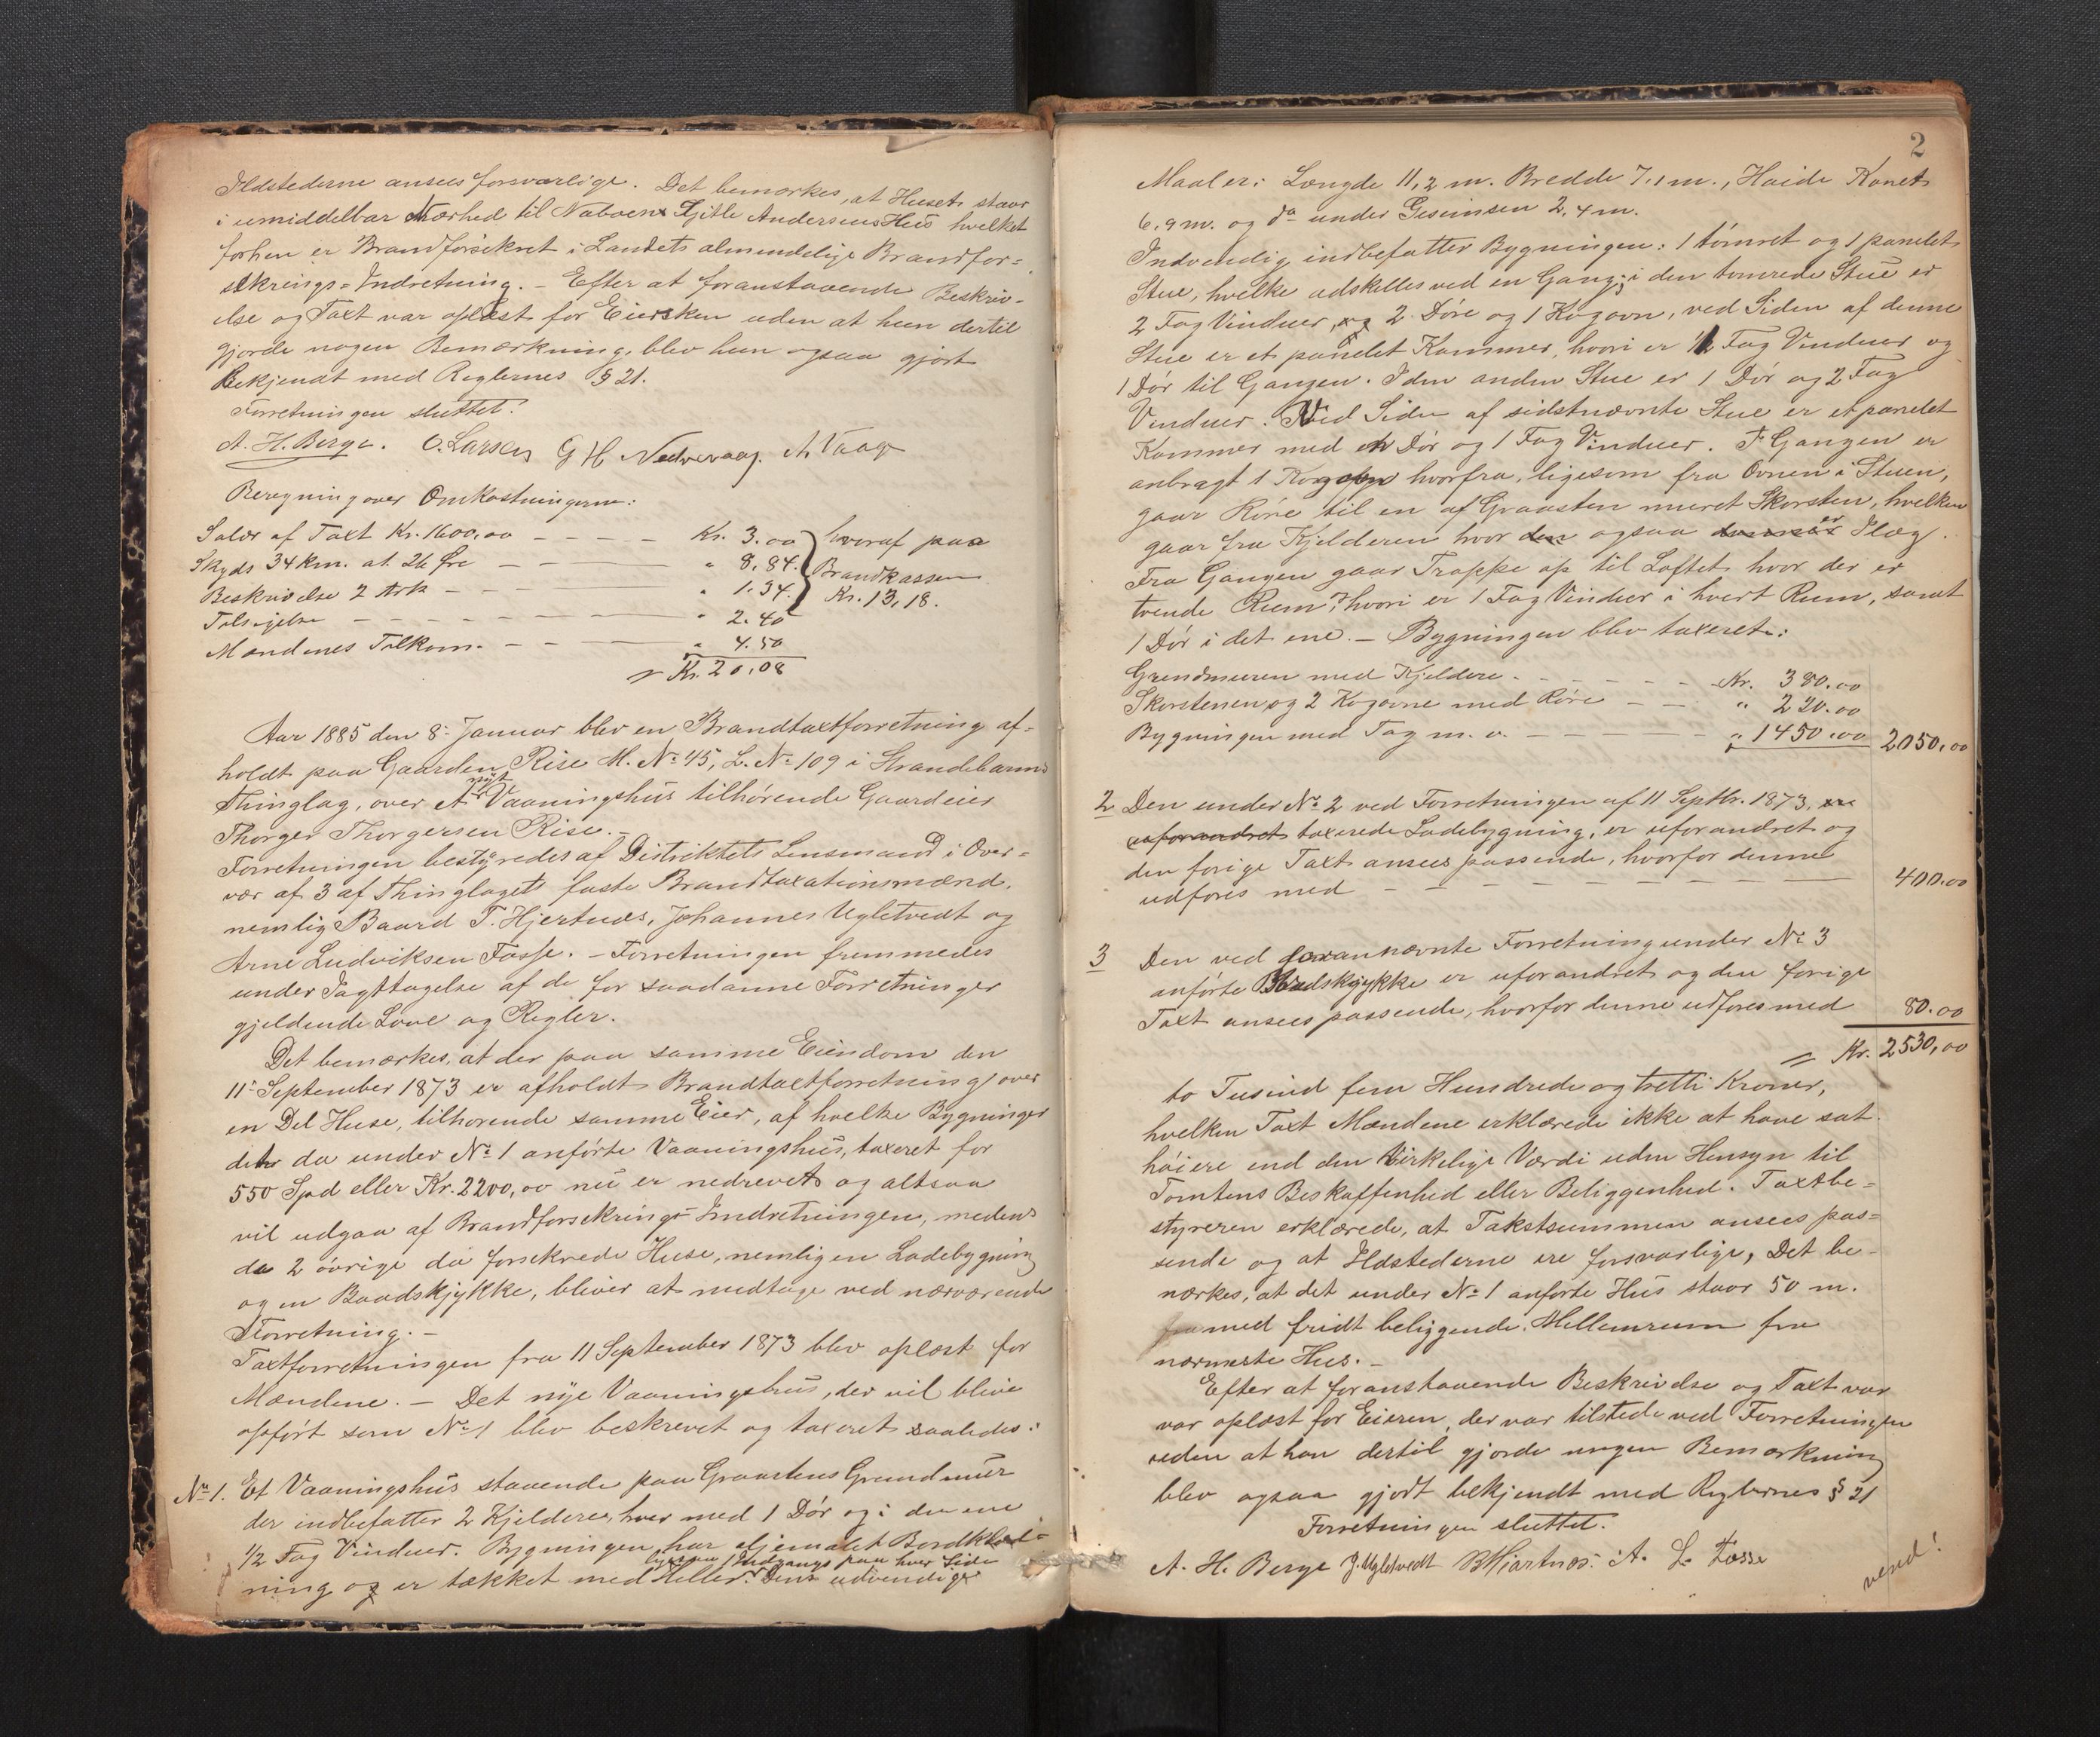 Ildstederne ansees forsvarlige. Det bemærkes, at Huset staar
i umiddelbar Nærhed til Naboens Kjitle Andersens Hus hvilket
forhen er Brandforsikret i Landets almindelige Brandfor-
sikrings-Indretning. – Efter at foranstaaende Beskriv-
else og Taxt var oplæst for Eiersken uden at hun dertil
gjorde nogen Bemærkning, blev hun ogsaa gjort
bekjendt med Reglernes § 21.
Forretningen sluttet.
A. H. Berge. O. Larsen G H Nedrevaag. A. Vaage
Beregning over Omkostningerne:
Salær af Taxt Kr. 1600,00 – – – – Kr. 3.00 } hvoraf paa
Skyds 34 km. at 26 Øre – – – " 8,84. } Brandkassen
Beskrivelse 2 Ark – – – " 1.34. } Kr. 13,18.
Tilsigelse – – – – – " 2.40
Mændenes Tilkom. – – – " 4.50
Kr. 20,08
Aar 1885 den 8: Januar blev en Brandtaxtforretning af-
holdt paa Gaarden Rise M. No 45, L. No 109 i Strandebarms
Thinglag, over et nyt Vaaningshus tilhørende Gaardeier
Thorger Thorgersen Rise. –
Forretningen bestyredes af Distriktets Lensmand i Over-
vær af 3 af Thinglagets faste Brandtaxationsmænd.
nemlig Baard T. Hjertnæs, Johannes Ugletvedt og
Arne Ludviksen Fosse. – Forretningen fremmedes
under Iagttagelse af de for saadanne Forretninger
gjeldende Love og Regler.
Det bemærkes, at der paa samme Eiendom den
11: September 1873 er afholdt Brandtaxtforretning over
en Del Huse, tilhørende samme Eier, af hvilke Bygninger
det da under No 1 anførte Vaaningshus, taxeret for
550 Spd eller Kr. 2200,00 nu er nedrevet og altsaa
vil udgaa af Brandforsekrings-Indretningen, medens
de 2 øvrige da forsekrede Huse, nemlig en Ladebygning
og en Baadskjykke, bliver at medtage ved nærværende
Forretning. –
Taxtforretningen fra 11 September 1873 blev oplæst for
Mændene. – Det nye Vaaningshus, der vil blive
opført som No 1 blev beskrevet og taxeret saaledes:
No 1. Et Vaaningshus staaende paa Graastens Grundmur
der indbefatter 2 Kjeldere, hver med 1 Dør og i den ene
1/2 Fag Vinduer. Bygningen har oljemalet Bordklæd-
1 Indgangs paa hver Side
ning og er tækket med Heller. Dens udvendige
2
Maal er: Længde 11,2 m. Bredde 7,1 m., Høide Rønet
6,9 m. og do under Gesimsen 2,4 m.
Indvendig indbefatter Bygningen: 1 tømret og 1 panelet
Stue, hvilke adskilles ved en Gang; i den tømrede Stue er
2 Fag Vinduer, og 2 Døre og 1 Kogovn, ved Siden af denne
Stue er et panelet Kammer, hvori er 1/2 Fag Vinduer og
1 Dør til Gangen. I den anden Stue er 1 Dør og 2 Fag
Vinduer. Ved Siden af sidstnævnte Stue er et panelet
Kammer med en Dør og 1 Fag Vinduer. I Gangen er
anbragt 1 Kogovn hvorfra, ligesom fra Ovnen i Stuen,
gaar Røre til en af Graasten muret Skorsten, hvilken
gaar fra Kjelderen hvor den ogsaa er Ilæg.
Fra Gangen gaar Trappe op til Loftet hvor der er
tvende Rum, hvori er 1 Fag Vinduer i hvert Rum, samt
1 Dør i det ene. – Bygningen blev taxeret:
Grundmuren med Kjeldere. – – – – – Kr. 380.00
Skorstenen og 2 Kogovne med Røre – – " 220.00
Bygningen med Tag m. v. – – – – – " 1450.00 2050,00
2 Den under No 2 ved Forretningen af 11 Septbr. 1873, er
uforandret taxerede Ladebygning, er uforandret og
den forige Taxt ansees passende, hvorfor denne
udføres med – – – – – – – – – 400.00
3 Den ved forannævnte Forretning under No 3
anførte Baadskjykke er uforandret og den forige
Taxt ansees passende, hvorfor denne udføres med 80.00
= Kr. 2530,00
to Tusind fem Hundrede og tretti Kroner,
hvilken Taxt Mændene erklærede ikke at have sat
høiere end den virkelige Værdi uden Hensyn til
Tomtens Beskaffenhed eller Beliggenhed. Taxtbe-
styreren erklærede, at Takstsummen ansees pas-
sende og at Ildstederne ere forsvarlige, Det be-
mærkes, at det under No 1 anførte Hus staar 50 m.
med fridt beliggende Mellemrum fra
nærmeste Hus. –
Efter at foranstaaende Beskrivelse og Taxt var
var oplæst for Eieren, der var tilstede ved Forretningen
uden at han dertil gjorde nogen Bemærkning
blev ogsaa gjort bekjendt med Reglernes § 21
Forretningen sluttet.
A. H. Berge J. Ugletvedt B Hjartnæs. A. L. Fosse
vend!